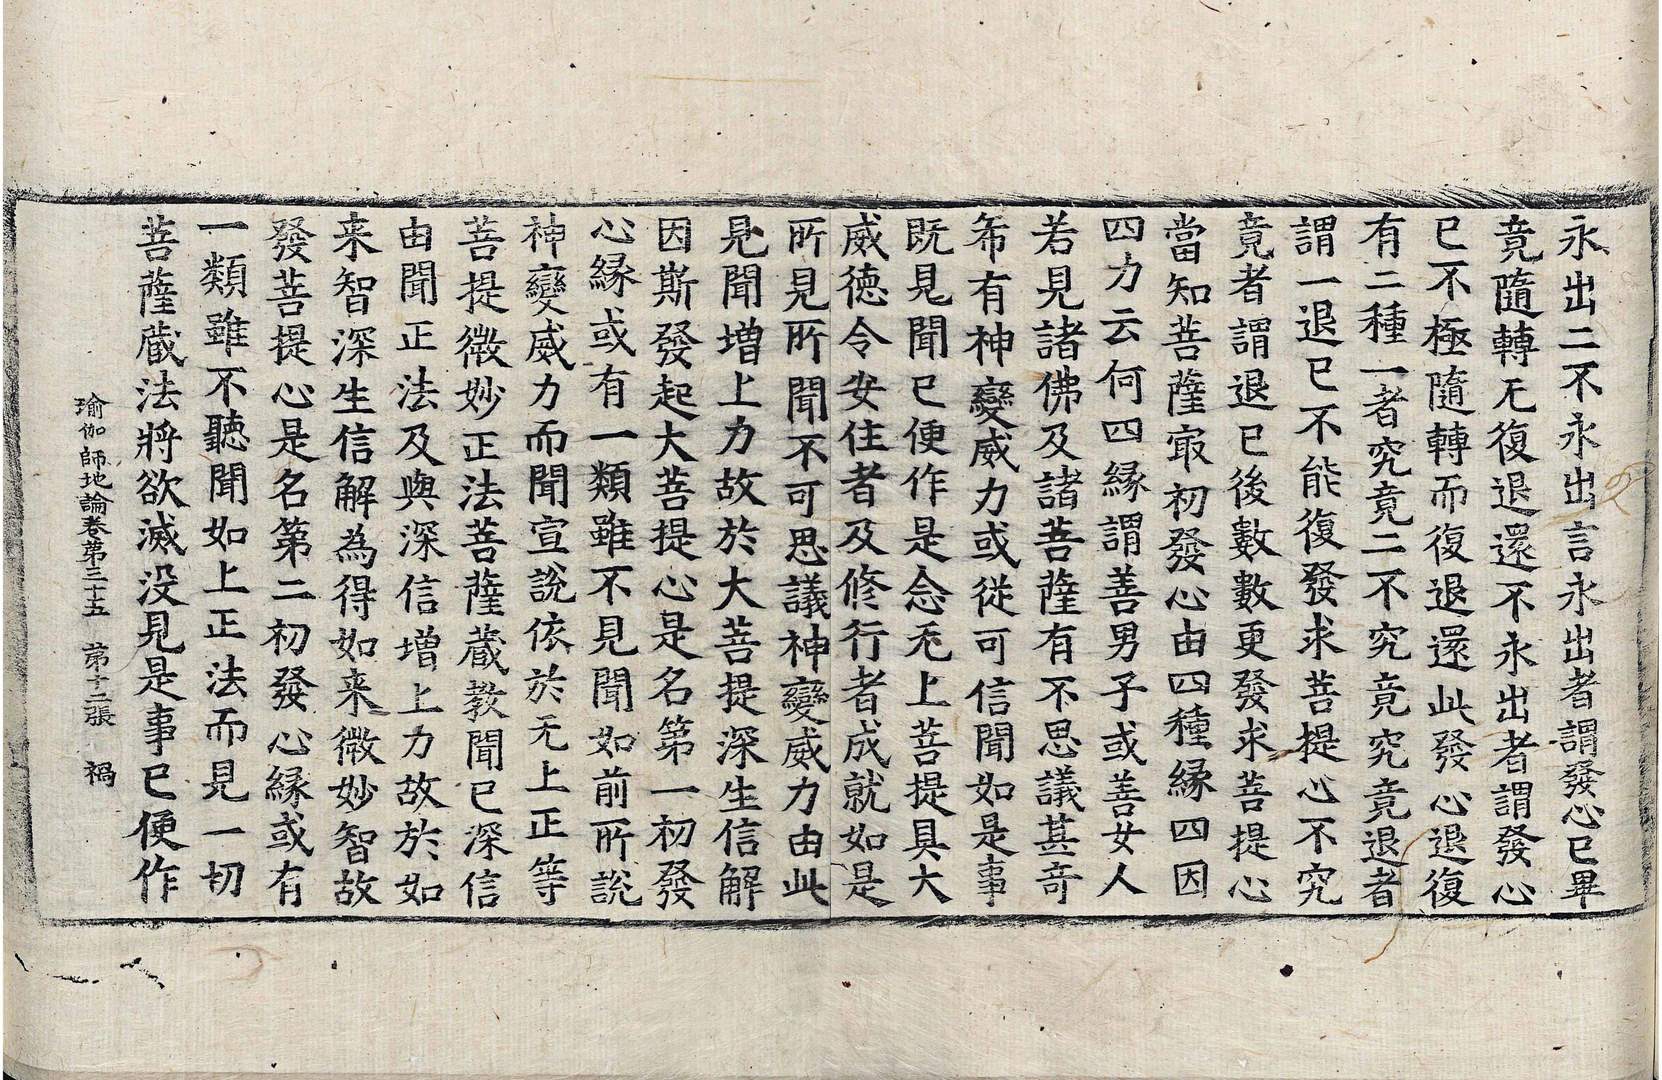 永出二不永出言永出者謂發心已畢
竟隨轉无復退還不永出者謂發心
已不極隨轉而復退還此發心退復
有二種一者究竟二不究竟究竟退者
謂一退已不能復發求菩提心不究
竟者謂退已後數數更發求菩提心
當知菩薩冣初發心由四種縁四因
四力云何四縁謂善男子或善女人
若見諸佛及諸菩薩有不思議甚奇
希有神變威力或從可信聞如是事
既見聞已便作是念无上菩提具大
威德令安住者及修行者成就如是
所見所聞不可思議神變威力由此
見聞增上力故於大菩提深生信解
因斯發起大菩提心是名第一初發
心縁或有一類雖不見聞如前所說
神變威力而聞宣說依於无上正等
菩提微妙正法菩薩藏教聞已深信
由聞正法及與深信增上力故於如
来智深生信解為得如来微妙智故
發菩提心是名第二初發心縁或有
一類雖不聽聞如上正法而見一切
菩薩藏法將欲滅没見是事已便作
瑜伽師地論卷第三十五　第十二張　禍